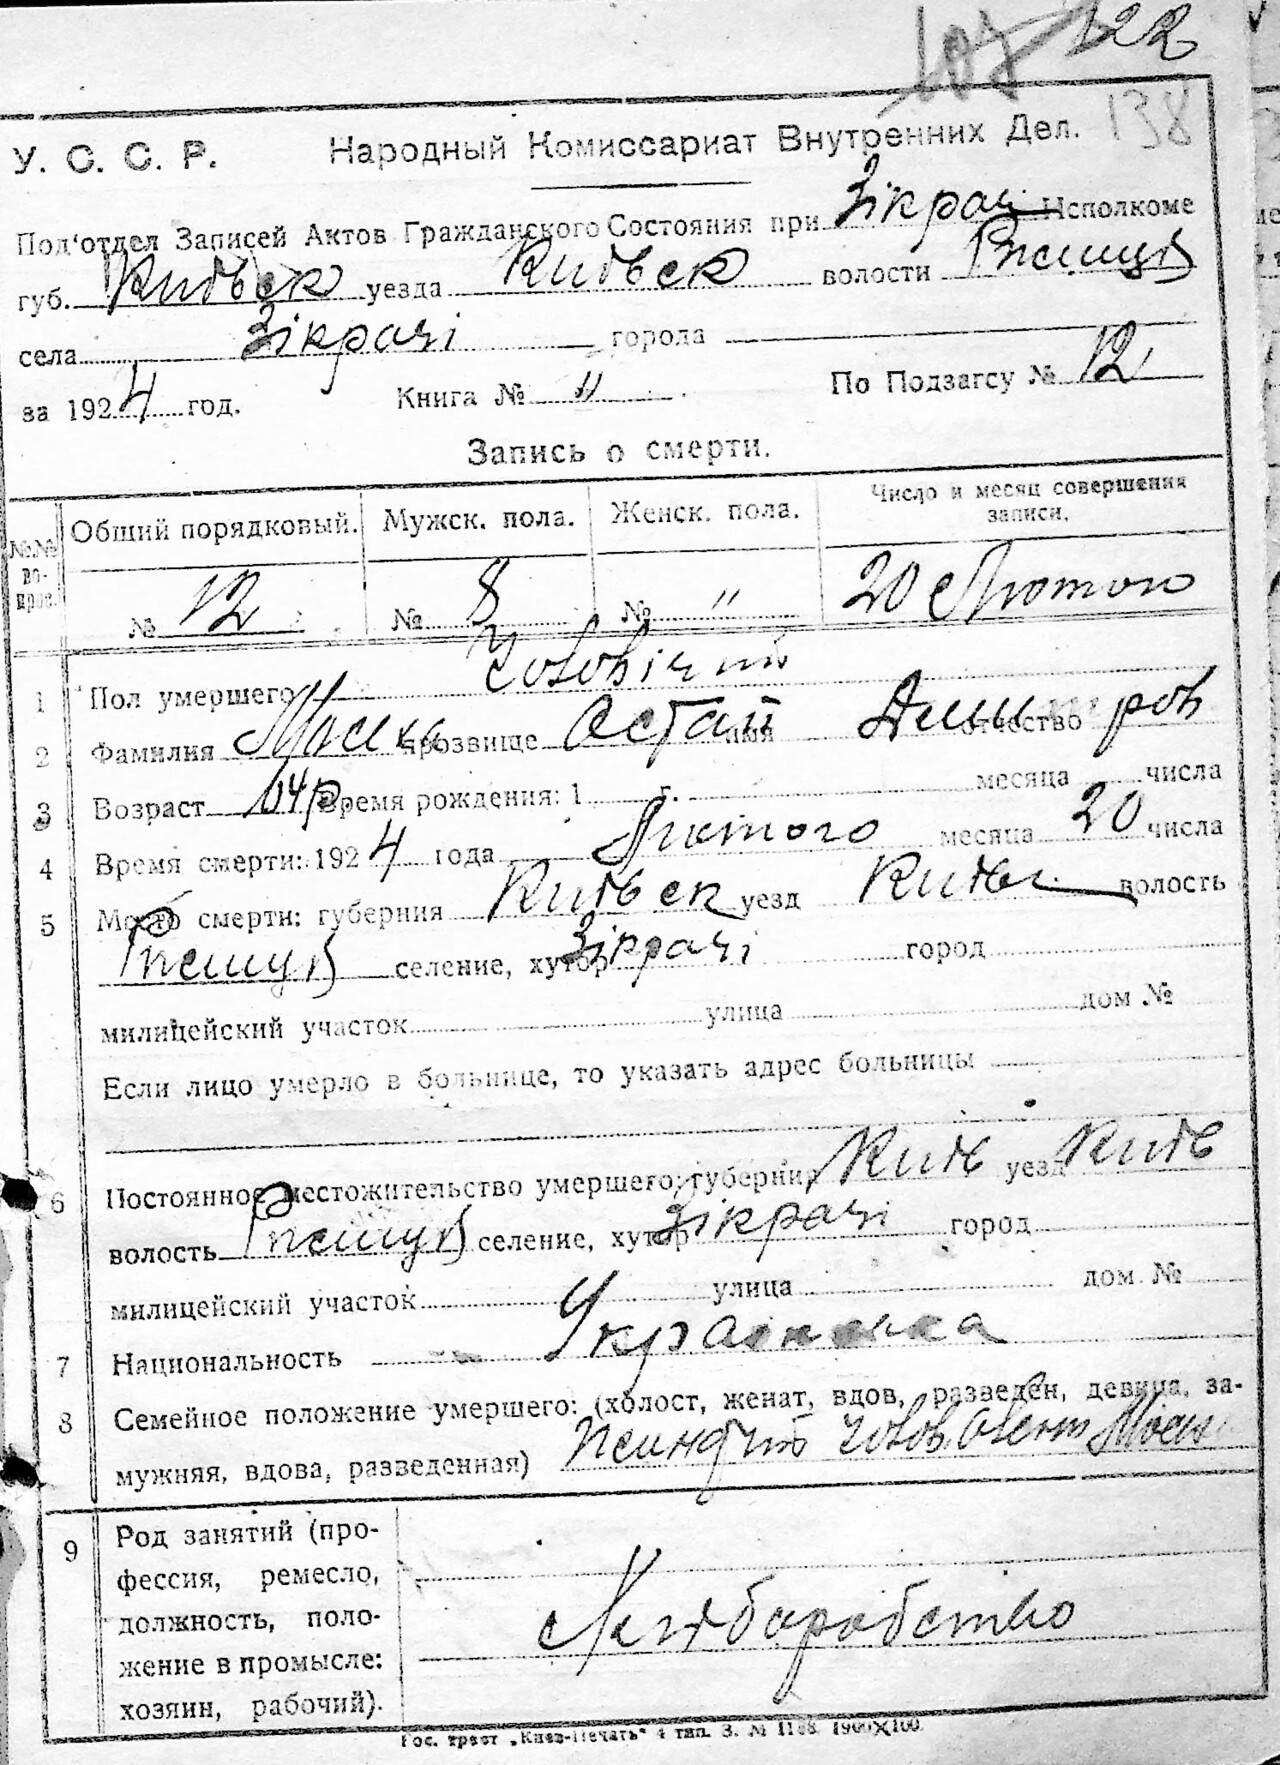 107 122
138
У. С. С. Р. Народный Комиссариат Внутренних Дел.
Под'отдел Записей Актов Гражданского Состояния при Зікрачі Исполкоме
губ. Київск уезда Київск волости Ржищів
села Зікрачі города
за 1924 год. Книга № " По Подзагсу № 12
Запись о смерти.
№№ вопрос. Общий порядковый. Мужск. пола. Женск. пола. Число и месяц совершения записи.
№ 12 № 8 № " 20 Лютого
1 Пол умершего Чоловічий
2 Фамилия прозвище Остап имя отчество
3 Возраст Время рождения: 1 г. месяца числа
4 Время смерти: 1924 года Лютого месяца 20 числа
5 Место смерти: губерния Київск уезд волость
Ржищів селение, хутор Зікрачі город
милицейский участок улица дом №
Если лицо умерло в больнице, то указать адрес больницы
6 Постоянное местожительство умершего: губерния Київ уезд Київ
волость Ржищів селение, хутор Зікрачі город
милицейский участок улица дом №
7 Национальность Українська
8 Семейное положение умершего: (холост, женат, вдов, разведен, девица, за-
мужняя, вдова, разведенная)
9 Род занятий (про-
фессия, ремесло,
должность, поло-
жение в промысле:
хозяин, рабочий).
Хліборобство
Гос. трест „Киев-Печать" 4 тип. З. № 1168. 1900X100.